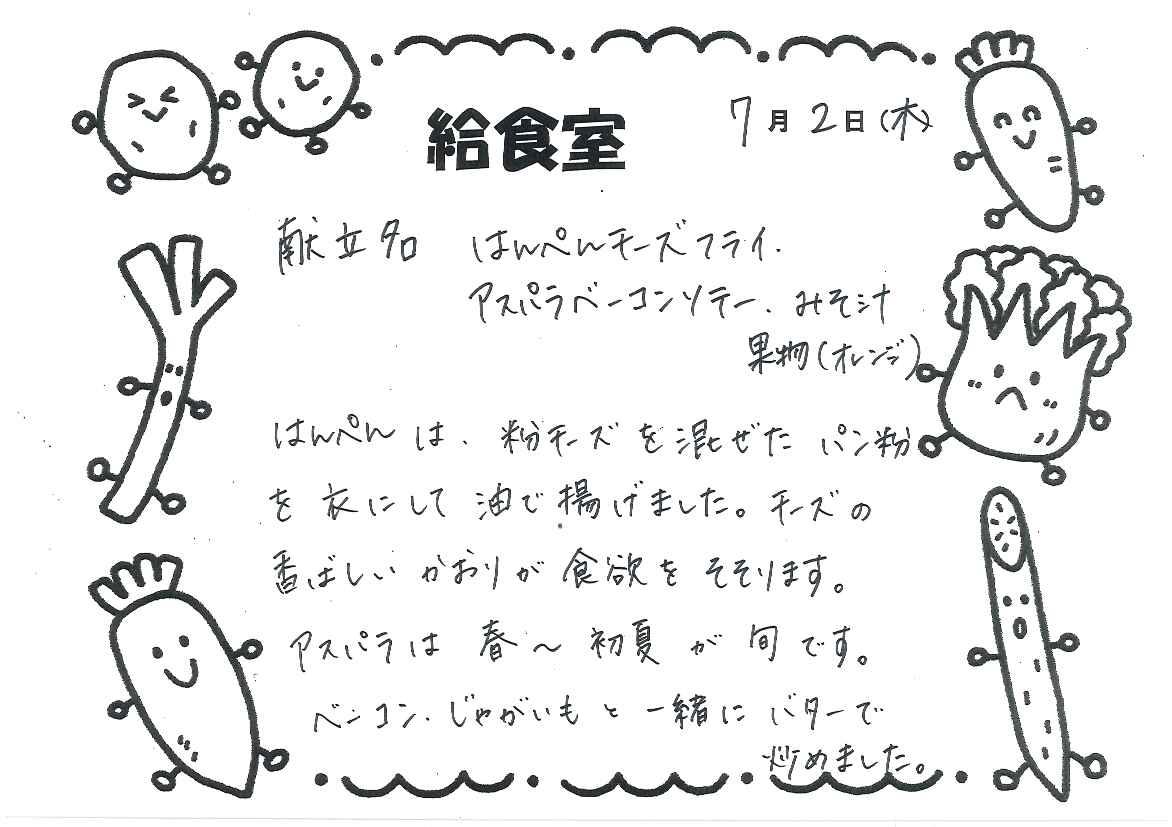 給食室
7月2日(木)
献立名 はんぺんチーズフライ.
アスパラベーコンソテー、みそ汁
果物(オレンジ)
はんぺんは、粉チーズを混ぜたパン粉
を衣にして油で揚げました。チーズの
香ばしいかおりが食欲をそそります。
アスパラは春〜初夏が旬です。
ベーコン、じゃがいもと一緒にバターで
炒めました。